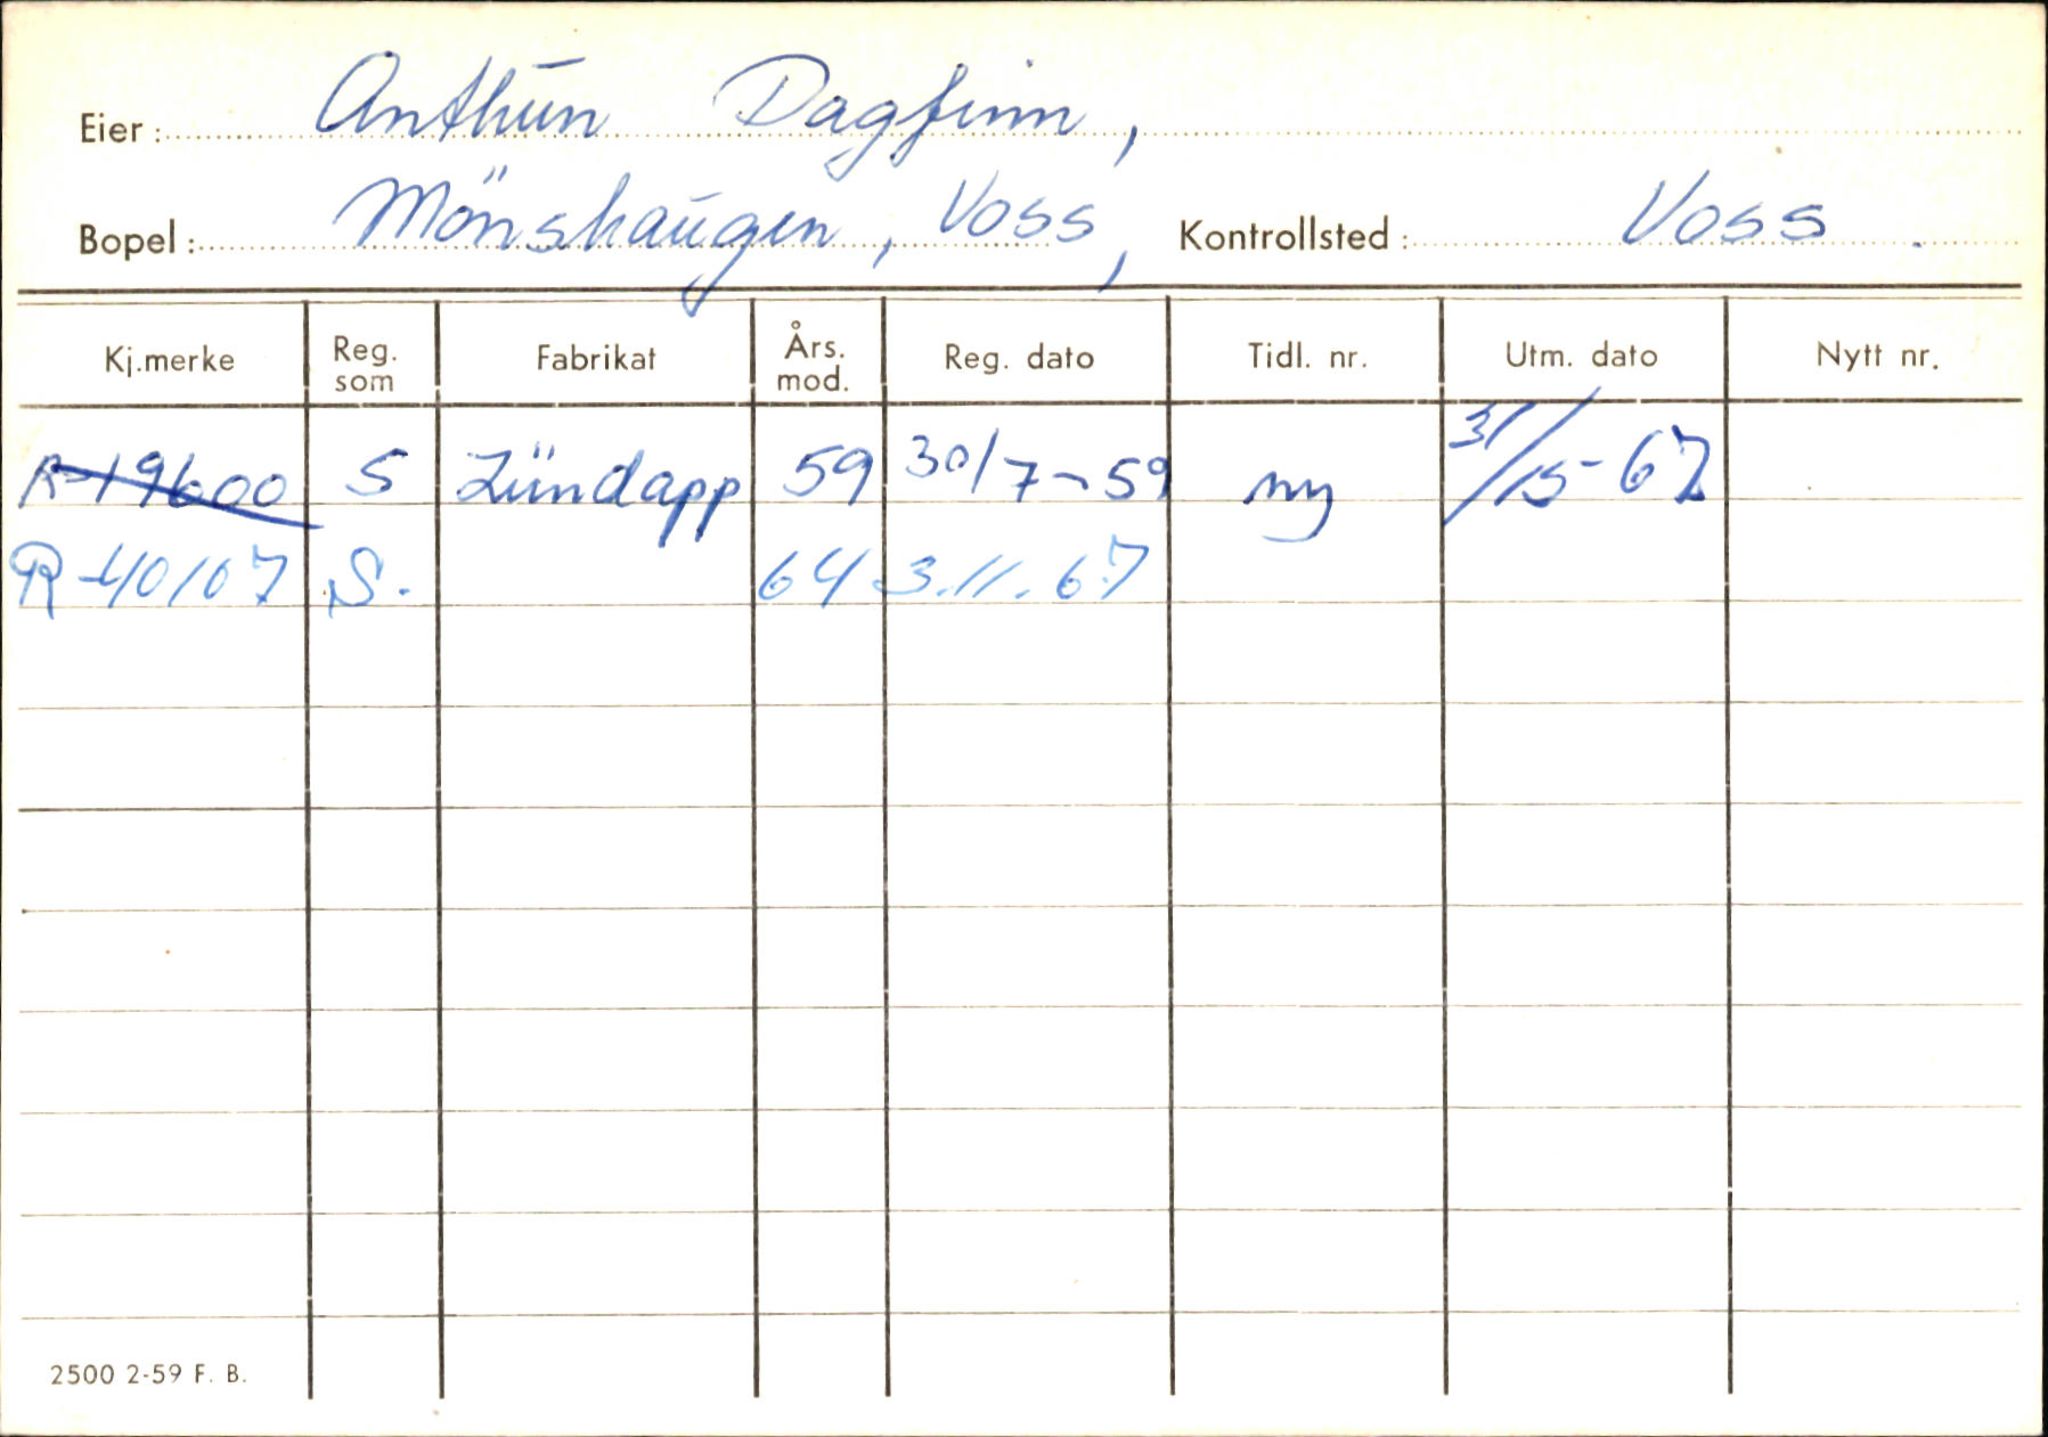 Eier: Anthun Dagfinn,
Bopel: Mönshaugen, Voss, Kontrollsted: Voss.
Kj.merke Reg. som Fabrikat Års. mod. Reg. dato Tidl. nr. Utm. dato Nytt nr.
R-19600 S Zündapp 59 30/7-59 ny 31/5-62
R-40107 S. 64 3.11.67
2500 2-59 F. B.